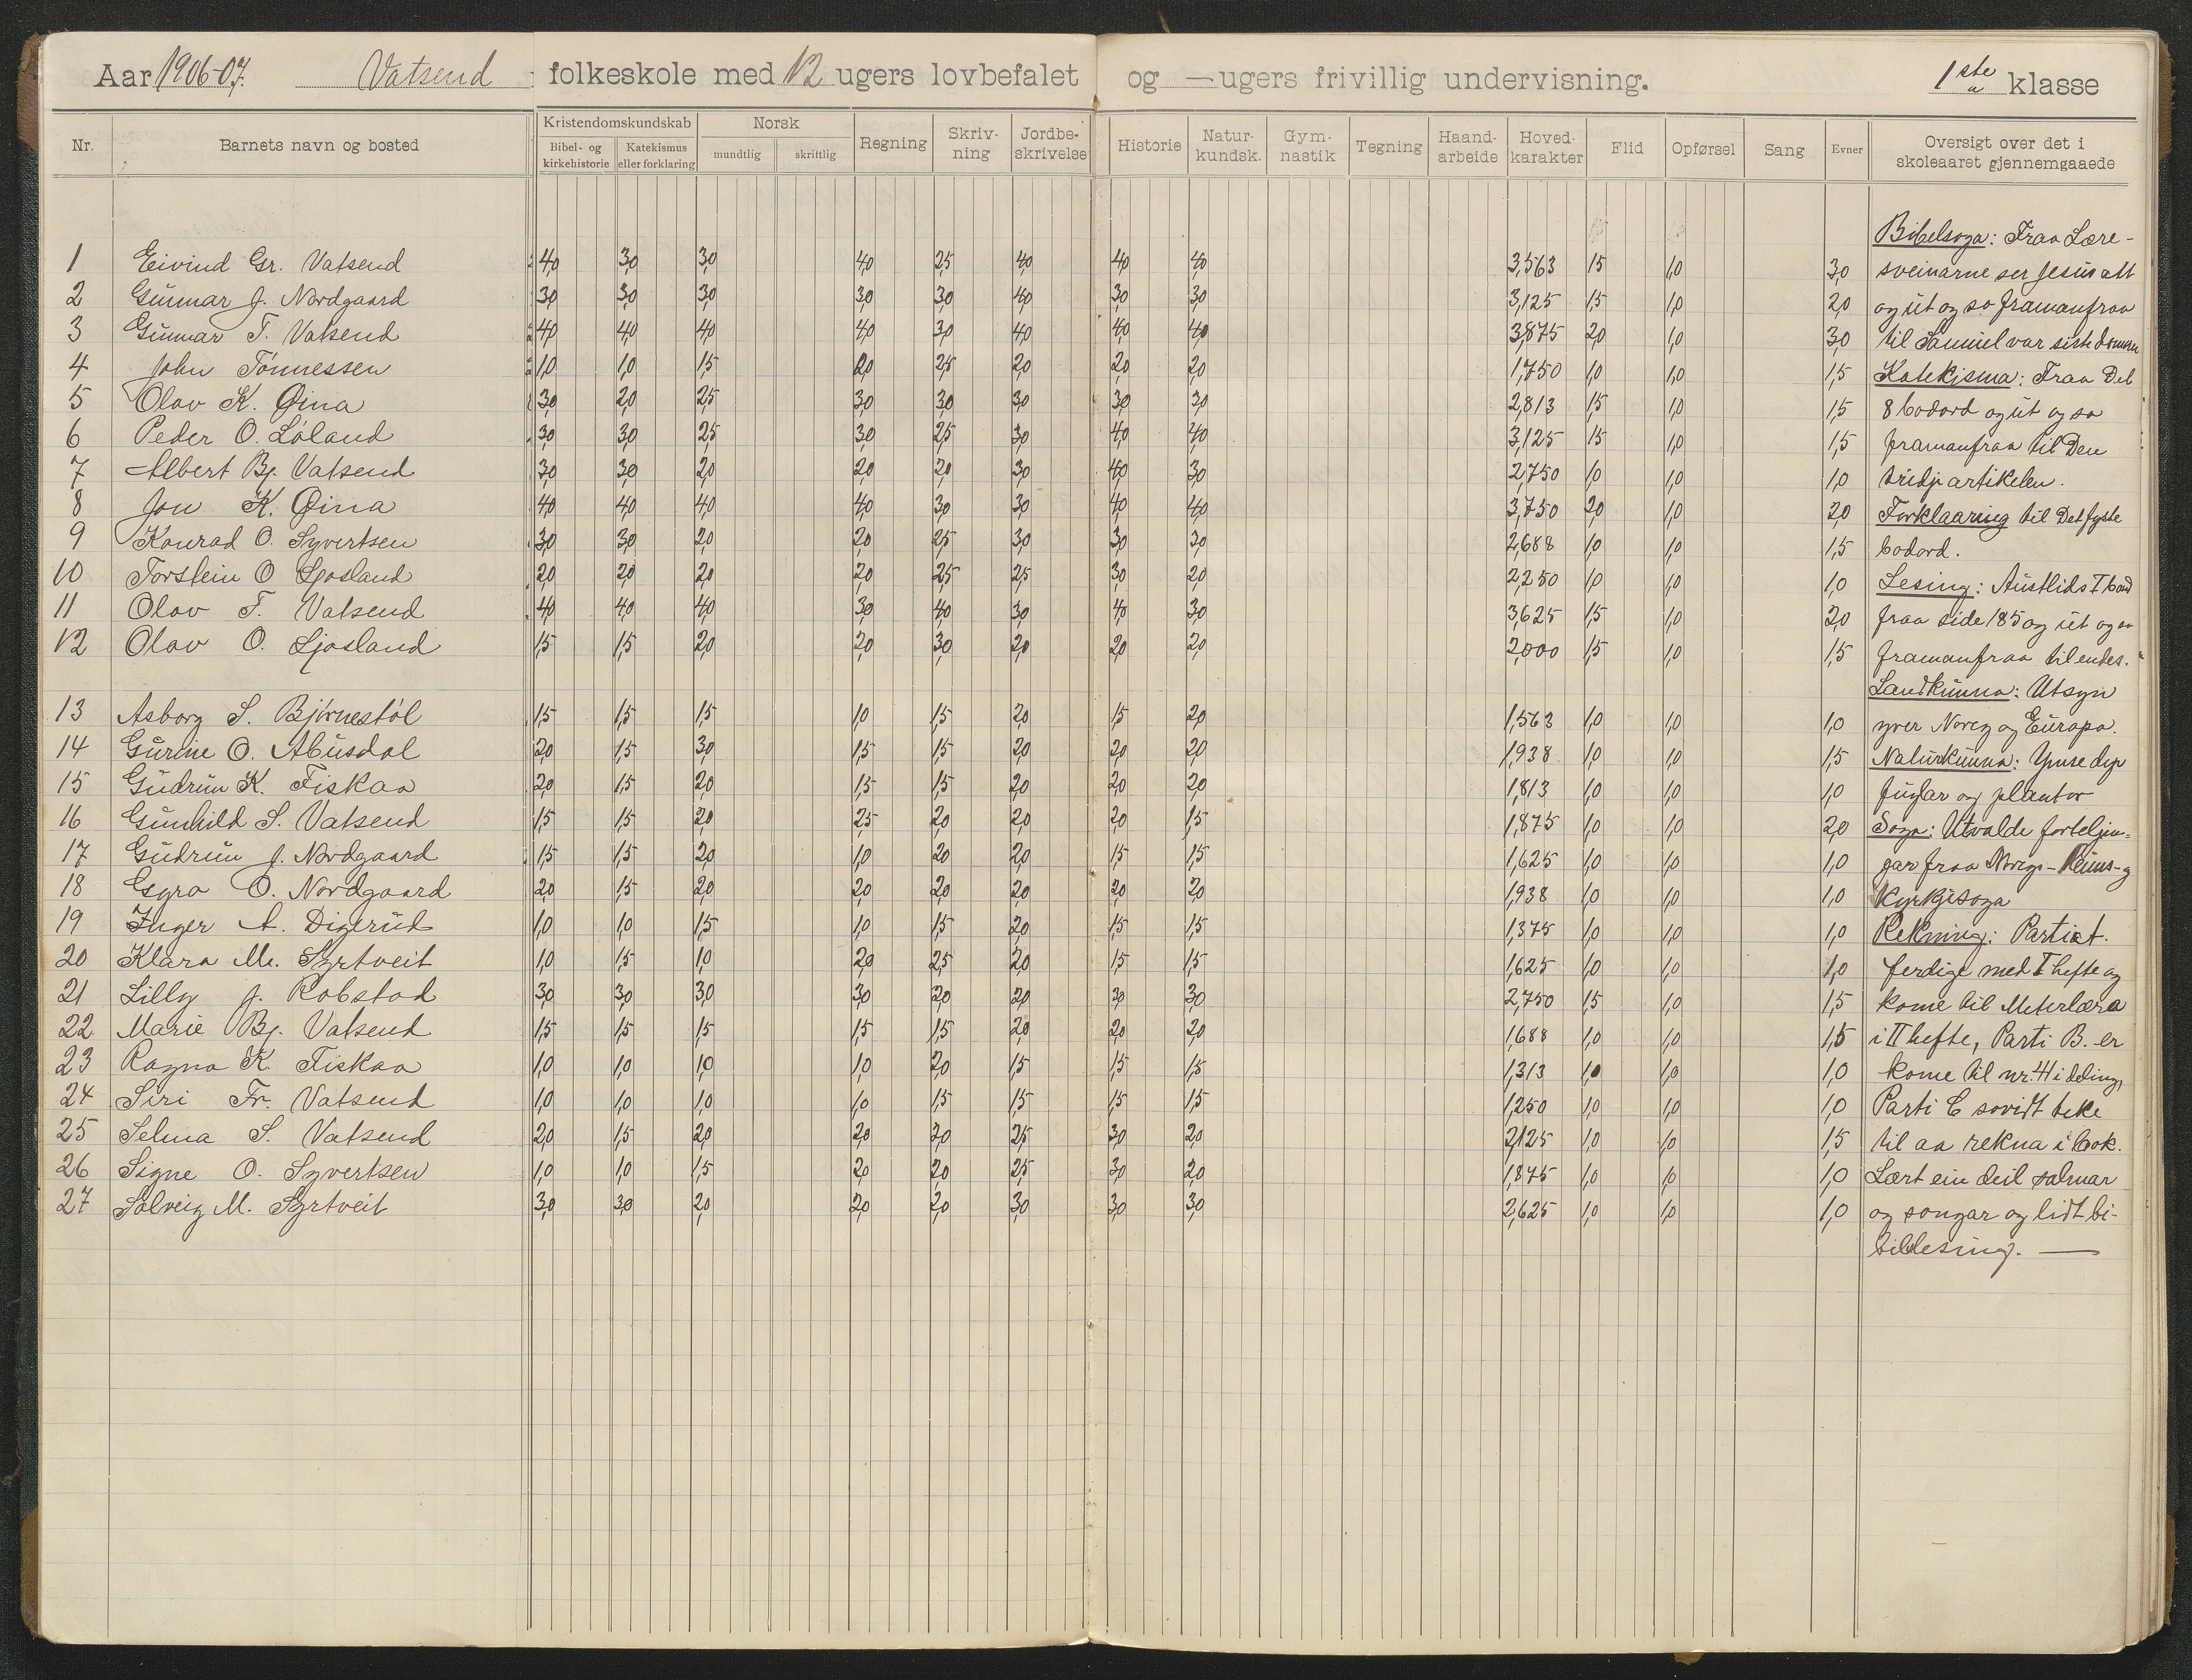 Aar 1906-07. Vatsend folkeskole med 12 ugers lovbefalet og — ugers frivillig undervisning. 1ste a klasse
Nr. Barnets navn og bosted Kristendomskundskab Bibel- og kirkehistorie Katekismus eller forklaring Norsk mundtlig skriftlig Regning Skriv-ning Jordbe-skrivelse Historie Natur-kundsk. Gym-nastik Tegning Haand-arbeide Hoved-karakter Flid Opførsel Sang Evner Oversigt over det i skoleaaret gjennemgaaede
Bibelsoga: Fraa Lære-
1 Eivind Gr. Vatsend 4,0 3,0 3,0 4,0 2,5 4,0 4,0 4,0 3,563 1,5 1,0 3,0 sveinarne ser Jesus att
2 Gunnar J. Nordgaard 3,0 3,0 3,0 3,0 3,0 4,0 3,0 3,0 3,125 1,5 1,0 2,0 og ut og so framanfraa
3 Gunnar T. Vatsend 4,0 4,0 4,0 4,0 3,0 4,0 4,0 4,0 3,875 2,0 1,0 3,0 til Samuel var siste domaren
4 John Tønnessen 1,0 1,0 1,5 2,0 2,5 2,0 2,0 2,0 1,750 1,0 1,0 1,5 Katekisma: Fraa Det
5 Olav K. Øina 3,0 2,0 2,5 3,0 3,0 3,0 3,0 3,0 2,813 1,5 1,0 1,5 8 bodord og ut og so
6 Peder O. Løland 3,0 3,0 2,5 3,0 2,5 3,0 4,0 4,0 3,125 1,5 1,0 1,5 framanfraa til Den
7 Albert Bj. Vatsend 3,0 3,0 2,0 2,0 2,0 3,0 4,0 3,0 2,750 1,0 1,0 1,0 tridje artikelen.
8 Jon K. Øina 4,0 4,0 4,0 4,0 3,0 3,0 4,0 4,0 3,750 2,0 1,0 2,0 Forklaaring til Det fyste
9 Konrad O. Syvertsen 3,0 3,0 2,0 2,0 2,5 3,0 3,0 3,0 2,688 1,0 1,0 1,5 bodord.
10 Torstein O Ljosland 2,0 2,0 2,0 2,0 2,5 2,5 3,0 2,0 2,250 1,0 1,0 1,0 Lesing: Austlids I band
11 Olav T. Vatsend 4,0 4,0 4,0 3,0 4,0 3,0 4,0 3,0 3,625 1,5 1,0 2,0 fraa side 185 og ut og so
12 Olav O. Ljosland 1,5 1,5 2,0 2,0 3,0 2,0 2,0 2,0 2,000 1,5 1,0 1,5 framanfraa til endes.
Landkunna: Utsyn
13 Asborg S. Bjørnestøl 1,5 1,5 1,5 1,0 1,5 2,0 1,5 2,0 1,563 1,0 1,0 1,0 yver Noreg og Europa.
14 Gurine O. Abusdal 2,0 1,5 3,0 1,5 1,5 2,0 2,0 2,0 1,938 1,0 1,0 1,5 Naturkunna: Ymse dyr
15 Gudrun K. Fiskaa 2,0 1,5 2,0 1,5 1,5 2,0 2,0 2,0 1,813 1,0 1,0 1,0 fuglar og plantor
16 Gunhild S. Vatsend 1,5 1,5 2,0 2,5 2,0 2,0 2,0 1,5 1,875 1,0 1,0 2,0 Soga: Utvalde forteljin-
17 Gudrun J. Nordgaard 1,5 1,5 2,0 1,0 2,0 2,0 1,5 1,5 1,625 1,0 1,0 1,0 gar fraa Noregs- Heims- og
18 Gyro O. Nordgaard 2,0 1,5 2,0 2,0 2,0 2,0 2,0 2,0 1,938 1,0 1,0 1,0 Kyrkjesoga
19 Inger A. Digerud 1,0 1,0 1,5 1,0 1,5 2,0 1,5 1,5 1,375 1,0 1,0 1,0 Rekning: Parti A.
20 Klara M. Syrtveit 1,0 1,5 1,0 2,0 2,5 2,0 1,5 1,5 1,625 1,0 1,0 1,0 ferdige med I hefte og
21 Lilly J. Robstad 3,0 3,0 3,0 3,0 2,0 2,0 3,0 3,0 2,750 1,5 1,0 1,5 kome til Meterlæra
22 Marie Bj. Vatsend 1,5 1,5 1,5 1,5 1,5 2,0 2,0 2,0 1,688 1,0 1,0 1,5 i II hefte, Parti B. er
23 Ragna K. Fiskaa 1,0 1,0 1,0 1,0 2,0 1,5 1,5 1,5 1,313 1,0 1,0 1,0 kome til nr. 4 i deling,
24 Siri Fr. Vatsend 1,0 1,0 1,0 1,0 1,5 1,5 1,5 1,5 1,250 1,0 1,0 1,0 Parti C sovidt teke
25 Selma S. Vatsend 2,0 1,5 2,0 2,0 2,0 2,5 3,0 2,0 2,125 1,0 1,0 1,5 til aa rekna i bok.
26 Signe O. Syvertsen 1,0 1,0 1,5 2,0 2,0 2,5 3,0 2,0 1,875 1,0 1,0 1,0 Lært ein deil salmar
27 Solveig M. Syrtveit 3,0 3,0 2,0 2,0 2,0 3,0 3,0 3,0 2,625 1,0 1,0 1,0 og songar og lidt bi-
billesing. —